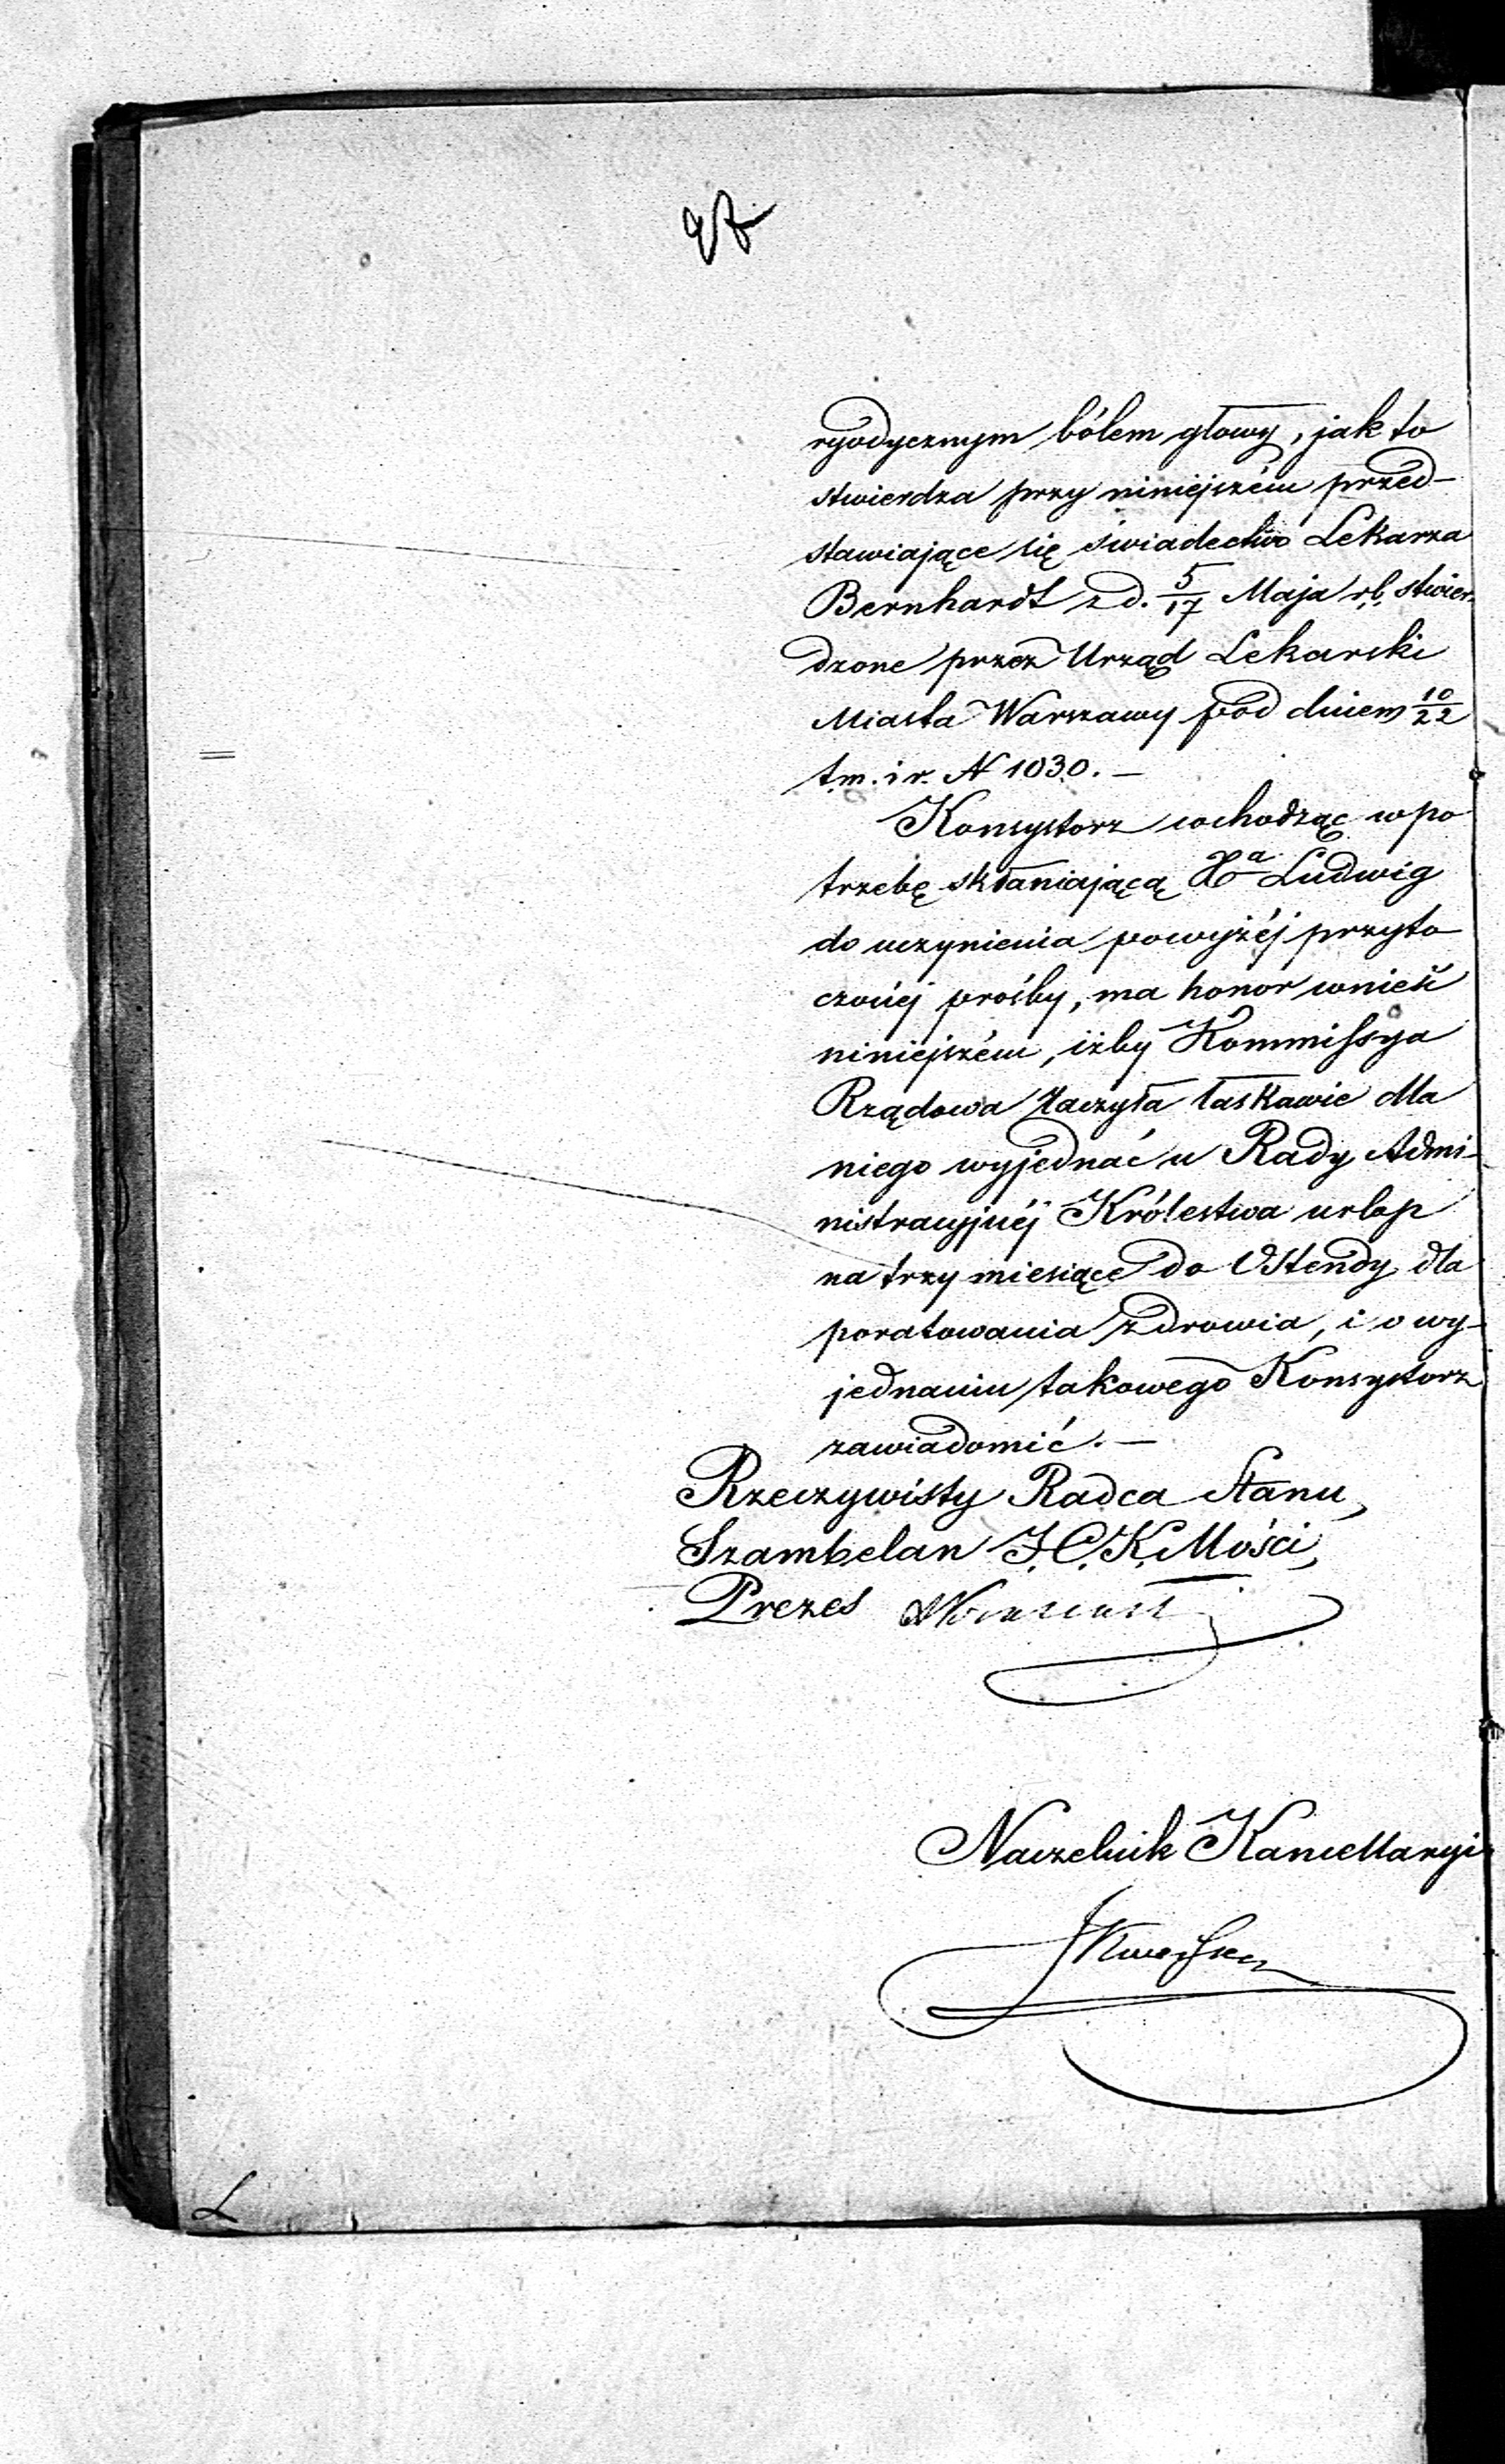 ryodycznym bólem głowy, jak to
stwierdza przy niniejszém przed-
stawiające się świadectwo Lekarza
Bernhardt z d. 5/17 Maja r.b. stwier-
dzone przez Urząd Lekarski
Miasta Warszawy pod dniem 10/22
t.m. i r. N 1030. —
Konsystorz wchodząc w po
trzebę skłaniającą Xa Ludwig
do uczynienia powyżéj przyto
czonéj prośby, ma honor wnieść
niniejszém, iżby Kommissya
Rządowa raczyła łaskawie dla
niego wyjednać u Rady Admi-
nistracyjnéj Królestwa urlop
na trzy miesiące do Ostendy dla
poratowania zdrowia, i o wy-
jednaniu takowego Konsystorz
zawiadomić. —
Rzeczywisty Radca Stanu,
Szambelan J.C.K. Mości,
Prezes
Naczelnik Kancellaryi